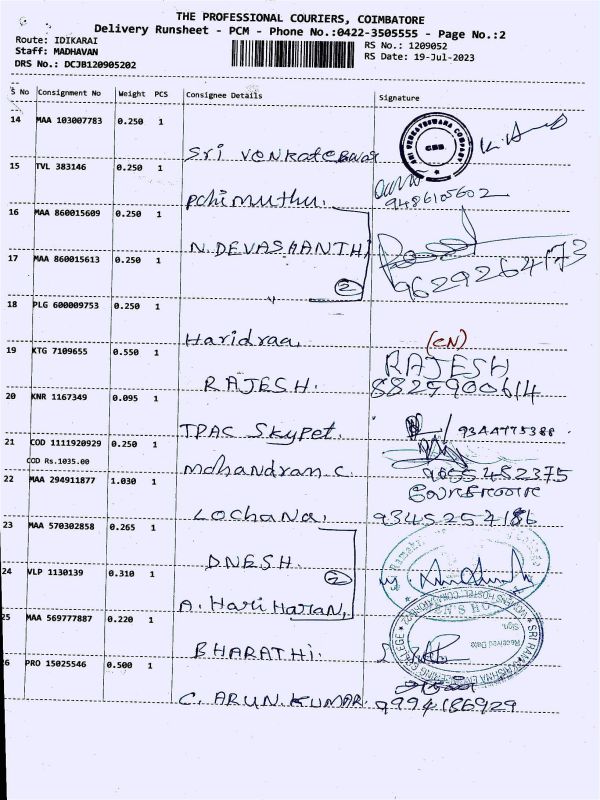 THE PROFESSIONAL COURIERS, COIMBATORE
Delivery Runsheet - PCM - Phone No.:0422-3505555 - Page No.:2
Route: IDIKARAI
RS No.: 1209052
Staff: MADHAVAN
RS Date: 19-Jul-2023
DRS No.: DCJB120905202
S No Consignment No Weight PCS Consignee Details Signature
14 MAA 103007783 0.250 1
Sri venkateswar
SRI VENKATESWARA COMPANY
CBE
15 TVL 383146 0.250 1
pchimuthu.
9486105602
16 MAA 860015609 0.250 1
N. DEVASHANTHI
17 MAA 860015613 0.250 1
2
9629264173
18 PLG 600009753 0.250 1
Haridraa
(CN)
19 KTG 7109655 0.550 1
RAJESH
RAJESH. 8825900614
20 KNR 1167349 0.095 1
TPAC Skypet.
21 COD 1111920929 0.250 1
COD Rs.1035.00
Mohandram C. 9655482375
22 MAA 294911877 1.030 1
Lochana, 9345254186
23 MAA 570302858 0.265 1
D.NESH.
24 VLP 1130139 0.310 1
2
A. Hari Haran,
25 MAA 569777887 0.220 1
BHARATHI.
SRI RAMAKRISHNA ENGINEERING COLLEGE
WOMENS HOSTEL
Received Date
Sign.
26 PRO 15025546 0.500 1
C. ARUN. KUMAR. 9994186929